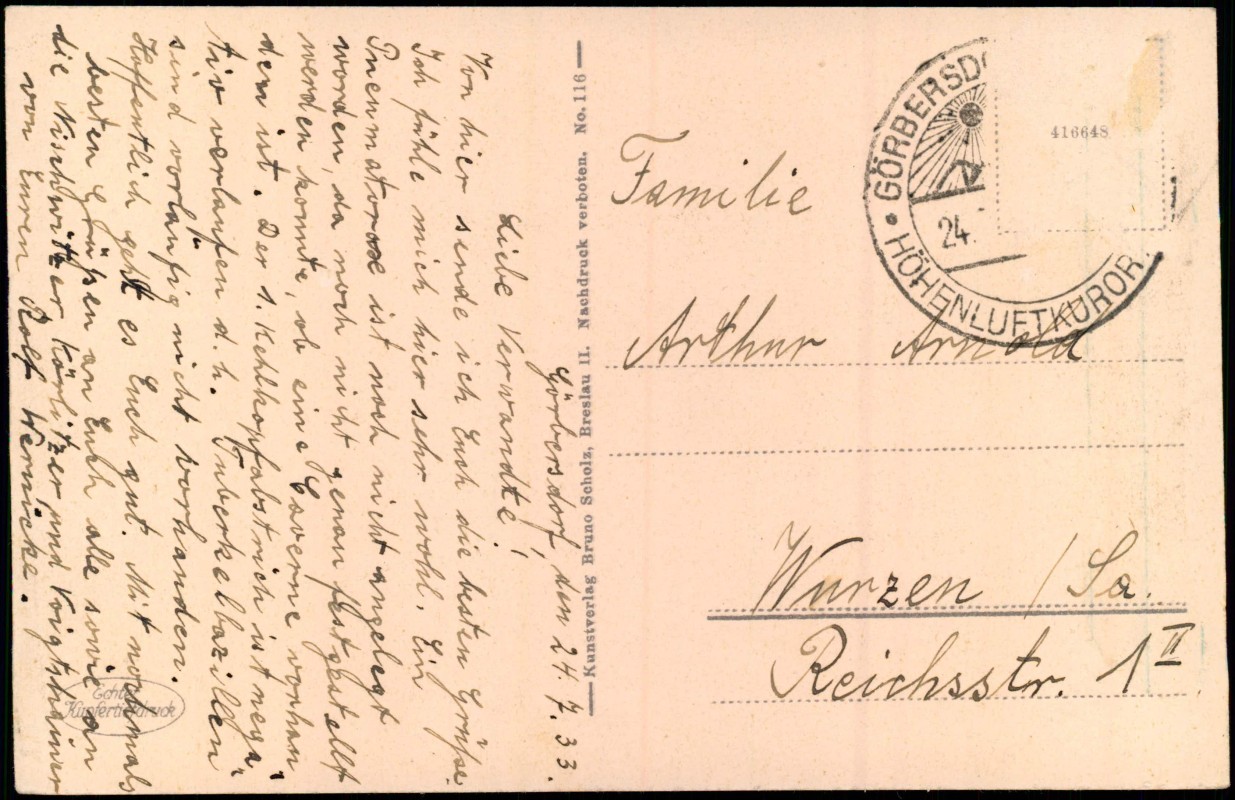 Görbersdorf den 24.7.33.
Liebe Verwandte!
Von hier sende ich Euch die besten Grüße.
Ich fühle mich hier sehr wohl. Ein
Pneumatorax ist noch nicht angelegt
worden, da noch nicht genau festgestellt
werden konnte, ob eine Caverne vorhan
den ist. Der 1. Kehlkopfabstrich ist nega"
tiv verlaufen d.h. Tuberkelbazillen
sind vorläufig nicht vorhanden.
Hoffentlich geht es Euch gut. Mit nochmals
besten Grüßen an Euch alle sowie an
die Nischwitzer Körlitzer und Voigtshainer
von Euren Rolf Wernicke.
Echter
Kupfertiefdruck
Kunstverlag Bruno Scholz, Breslau II. Nachdruck verboten. No. 116
GÖRBERSDO
24.
HÖHENLUFTKUROR
416648
Familie
Arthur Arnold
Wurzen / Sa.
Reichsstr. 1 II